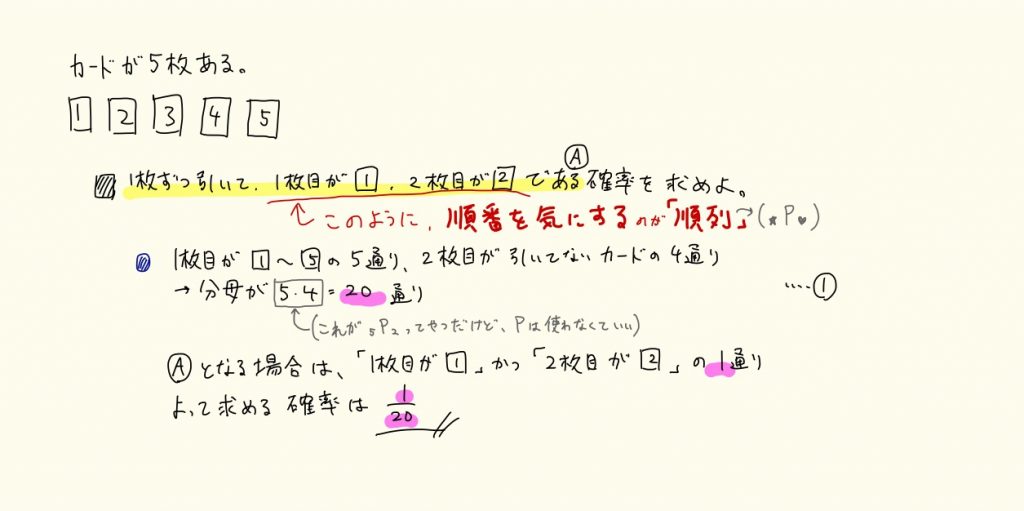 カードが5枚ある。
1 2 3 4 5
A
1枚ずつ引いて、1枚目が1、2枚目が2である確率を求めよ。
このように、順番を気にするのが「順列」(★P♥)
1枚目が1〜5の5通り、2枚目が引いてないカードの4通り
→分母が5・4=20通り ‥‥①
(これが₅P₂ってやつだけど、Pは使わなくていい)
Ⓐとなる場合は、「1枚目が1」かつ「2枚目が2」の1通り
よって求める確率は 1/20